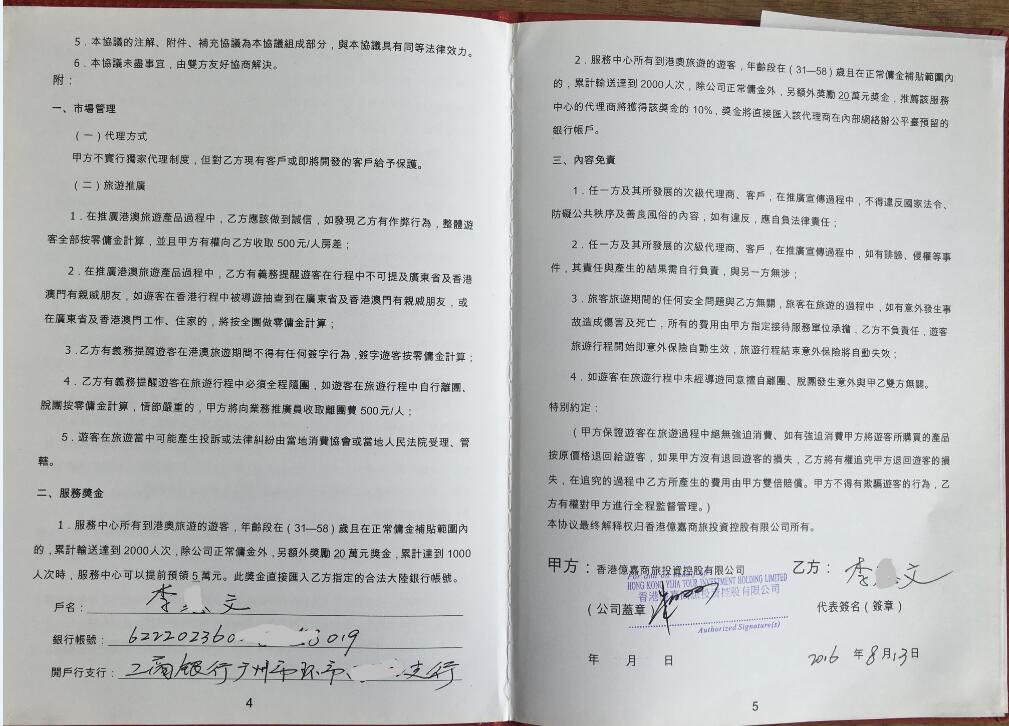 5．本協議的注解、附件、補充協議為本協議組成部分，與本協議具有同等法律效力。
6．本協議未盡事宜，由雙方友好協商解決。
附：
一、市場管理
（一）代理方式
甲方不實行獨家代理制度，但對乙方現有客戶或即將開發的客戶給予保護。
（二）旅遊推廣
1．在推廣港澳旅遊產品過程中，乙方應該做到誠信，如發現乙方有作弊行為，整體遊
客全部按零傭金計算，並且甲方有權向乙方收取 500元/人房差；
2．在推廣港澳旅遊產品過程中，乙方有義務提醒遊客在行程中不可提及廣東省及香港
澳門有親戚朋友，如遊客在香港行程中被導遊抽查到在廣東省及香港澳門有親戚朋友，或
在廣東省及香港澳門工作、住家的，將按全團做零傭金計算；
3．乙方有義務提醒遊客在港澳旅遊期間不得有任何簽字行為，簽字遊客按零傭金計算；
4．乙方有義務提醒遊客在旅遊行程中必須全程隨團，如遊客在旅遊行程中自行離團、
脫團按零傭金計算，情節嚴重的，甲方將向業務推廣員收取離團費 500元/人；
5．遊客在旅遊當中可能產生投訴或法律糾紛由當地消費協會或當地人民法院受理、管
轄。
二、服務獎金
1．服務中心所有到港澳旅遊的遊客，年齡段在（31—58）歲且在正常傭金補貼範圍內
的，累計輸送達到2000人次，除公司正常傭金外，另額外獎勵 20 萬元獎金，累計達到 1000
人次時，服務中心可以提前預領 5 萬元。此獎金直接匯入乙方指定的合法大陸銀行帳號。
戶名：李 文
銀行帳號：622202360 3019
開戶行支行：工商銀行广州市环市 支行
4
2．服務中心所有到港澳旅遊的遊客，年齡段在（31—58）歲且在正常傭金補貼範圍內
的，累計輸送達到 2000 人次，除公司正常傭金外，另額外獎勵 20 萬元獎金，推薦該服務
中心的代理商將獲得該獎金的 10%，獎金將直接匯入該代理商在內部網絡辦公平臺預留的
銀行帳戶。
三、內容免責
1．任一方及其所發展的次級代理商、客戶，在推廣宣傳過程中，不得違反國家法令、
防礙公共秩序及善良風俗的內容，如有違反，應自負法律責任；
2．任一方及其所發展的次級代理商、客戶，在推廣宣傳過程中，如有誹謗、侵權等事
件，其責任與產生的結果需自行負責，與另一方無涉；
3．旅客旅遊期間的任何安全問題與乙方無關，旅客在旅遊的過程中，如有意外發生事
故造成傷害及死亡，所有的費用由甲方指定接待服務單位承擔．乙方不負責任，遊客
旅遊行程開始即意外保險自動生效，旅遊行程結束意外保險將自動失效；
4．如遊客在旅遊行程中未經導遊同意擅自離團、脫團發生意外與甲乙雙方無關。
特別約定：
（甲方保證遊客在旅遊過程中絕無強迫消費、如有強迫消費甲方將遊客所購買的產品
按原價格退回給遊客，如果甲方沒有退回遊客的損失，乙方將有權追究甲方退回遊客的損
失，在追究的過程中乙方所產生的費用由甲方雙倍賠償。甲方不得有欺騙遊客的行為，乙
方有權對甲方進行全程監督管理。）
本协议最终解释权归香港億嘉商旅投資控股有限公司所有。
甲方：香港億嘉商旅投資控股有限公司 乙方：李 文
For and on behalf of
HONG KONG YIJIA TOUR INVESTMENT HOLDING LIMITED
香港億嘉商旅投資控股有限公司
（公司蓋章） 代表簽名（簽章）
Authorized Signature(s)
年 月 日 2016 年 8 月 13 日
5